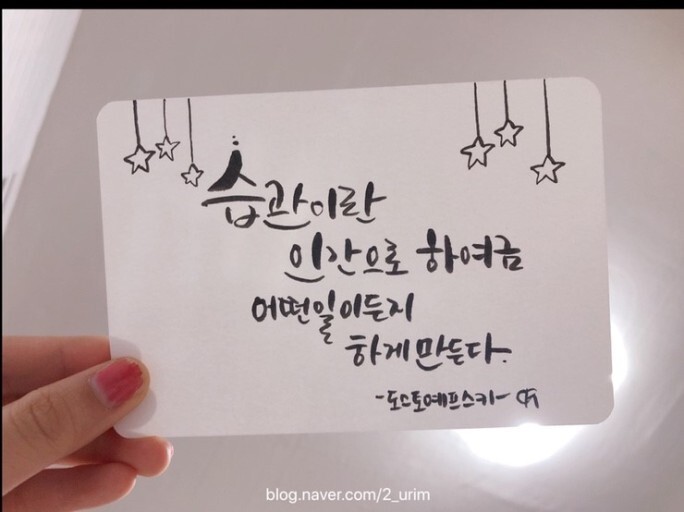 습관이란
인간으로 하여금
어떤일이든지
하게만든다.
-도스토예프스키-
blog.naver.com/2_urim